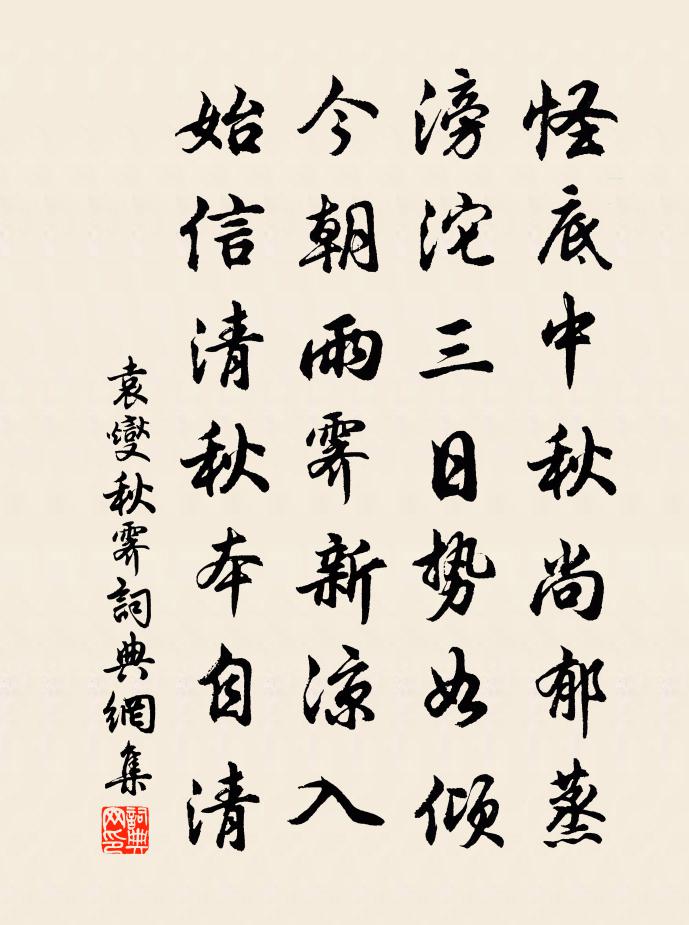 怪底中秋尚郁蒸
滂沱三日势如倾
今朝雨霁新凉入
始信清秋本自清
袁燮秋霁詞典網集
詞典網印